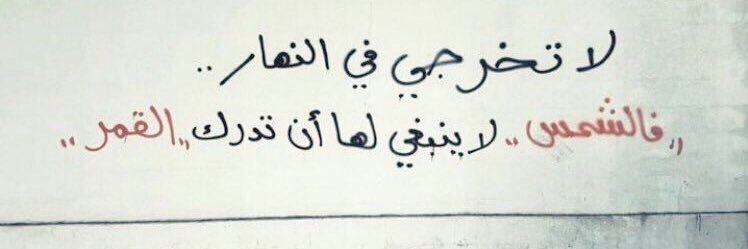 لا تخرجي في النهار ..
,,فالشمس,, لا ينبغي لها أن تدرك ,,القمر,,